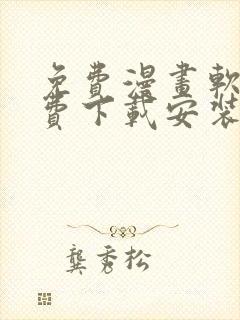 免費漫畫軟
費下載安裝
龔秀松